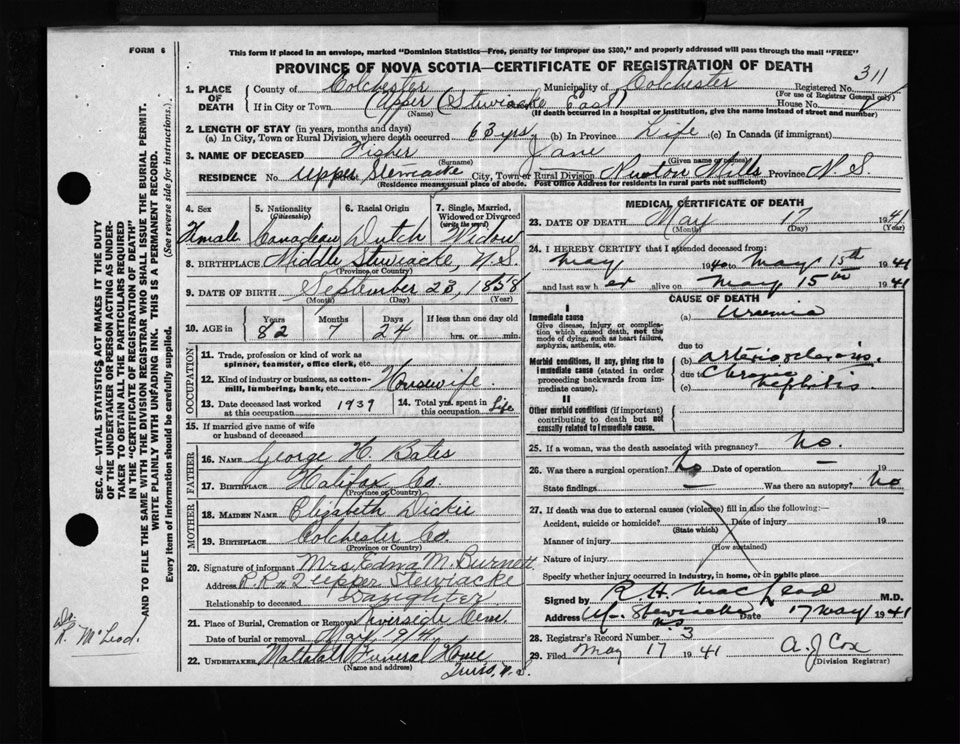 FORM 6
This form if placed in an envelope, marked "Dominion Statistics—Free, penalty for improper use $300," and properly addressed will pass through the mail "FREE"
PROVINCE OF NOVA SCOTIA—CERTIFICATE OF REGISTRATION OF DEATH
311
1. PLACE OF DEATH
County of Colchester Municipality of Colchester Registered No.
(For use of Registrar General only)
If in City or Town (Upper Stewiacke East) House No.
(Name) (If death occurred in a hospital or institution, give the name instead of street and number)
2. LENGTH OF STAY (in years, months and days)
(a) In City, Town or Rural Division where death occurred 63 yrs (b) In Province Life (c) In Canada (if immigrant)
3. NAME OF DECEASED Fisher Jane
(Surname) (Given name or names)
RESIDENCE No. Upper Stewiacke City, Town or Rural Division Newton Mills Province N.S.
(Residence means usual place of abode. Post Office Address for residents in rural parts not sufficient)
4. Sex 5. Nationality (Citizenship) 6. Racial Origin 7. Single, Married, Widowed or Divorced (write the word)
Female Canadian Dutch Widow
8. BIRTHPLACE Middle Stewiacke, N.S.
(Province or Country)
9. DATE OF BIRTH September 23, 1858
(Month) (Day) (Year)
10. AGE in Years Months Days If less than one day old
82 7 24 hrs. or min.
OCCUPATION
11. Trade, profession or kind of work as spinner, teamster, office clerk, etc.
12. Kind of industry or business, as cotton-mill, lumbering, bank, etc. Housewife.
13. Date deceased last worked at this occupation 1939 14. Total yrs. spent in this occupation Life
15. If married give name of wife or husband of deceased
FATHER
16. NAME George H. Bates
17. BIRTHPLACE Halifax Co.
(Province or Country)
MOTHER
18. MAIDEN NAME Elizabeth Dickie
19. BIRTHPLACE Colchester Co.
(Province or Country)
20. Signature of informant Mrs. Edna M. Burnett
Address R.R. # 2 Upper Stewiacke
Relationship to deceased Daughter
21. Place of Burial, Cremation or Removal Riverside Cem.
Date of burial or removal May 19/41
22. UNDERTAKER Mattatall Funeral Home
(Name and address) Truro, N.S.
MEDICAL CERTIFICATE OF DEATH
23. DATE OF DEATH May 17 1941
(Month) (Day)
24. I HEREBY CERTIFY that I attended deceased from
May 1940 to May 15th 1941
and last saw her alive on May 15th 1941
CAUSE OF DEATH
I
Immediate cause (a) Uraemia
Give disease, injury or complication which caused death, not the mode of dying, such as heart failure, asphyxia, asthenia, etc.
due to
Morbid conditions, if any, giving rise to immediate cause (stated in order proceeding backwards from immediate cause).
(b) arteriosclerosis.
due to Chronic
(c) nephitis
II
Other morbid conditions (if important) contributing to death but not causally related to immediate cause.
25. If a woman, was the death associated with pregnancy? No.
26. Was there a surgical operation? No Date of operation 19
State findings Was there an autopsy? No
27. If death was due to external causes (violence) fill in also the following:—
Accident, suicide or homicide? Date of injury 19
(State which)
Manner of injury
(How sustained)
Nature of injury
Specify whether injury occurred in industry, in home, or in public place
Signed by R H. MacLeod M.D.
Address U. Stewiacke N.S. Date 17 May 1941
28. Registrar's Record Number 3
29. Filed May 17 1941 A. J. Cox
(Division Registrar)
SEC. 46—VITAL STATISTICS ACT MAKES IT THE DUTY OF THE UNDERTAKER OR PERSON ACTING AS UNDERTAKER TO OBTAIN ALL THE PARTICULARS REQUIRED IN THE "CERTIFICATE OF REGISTRATION OF DEATH" AND TO FILE THE SAME WITH THE DIVISION REGISTRAR WHO SHALL ISSUE THE BURIAL PERMIT.
WRITE PLAINLY WITH UNFADING INK. THIS IS A PERMANENT RECORD.
Every item of Information should be carefully supplied. (See reverse side for instructions.)
R. McLeod.